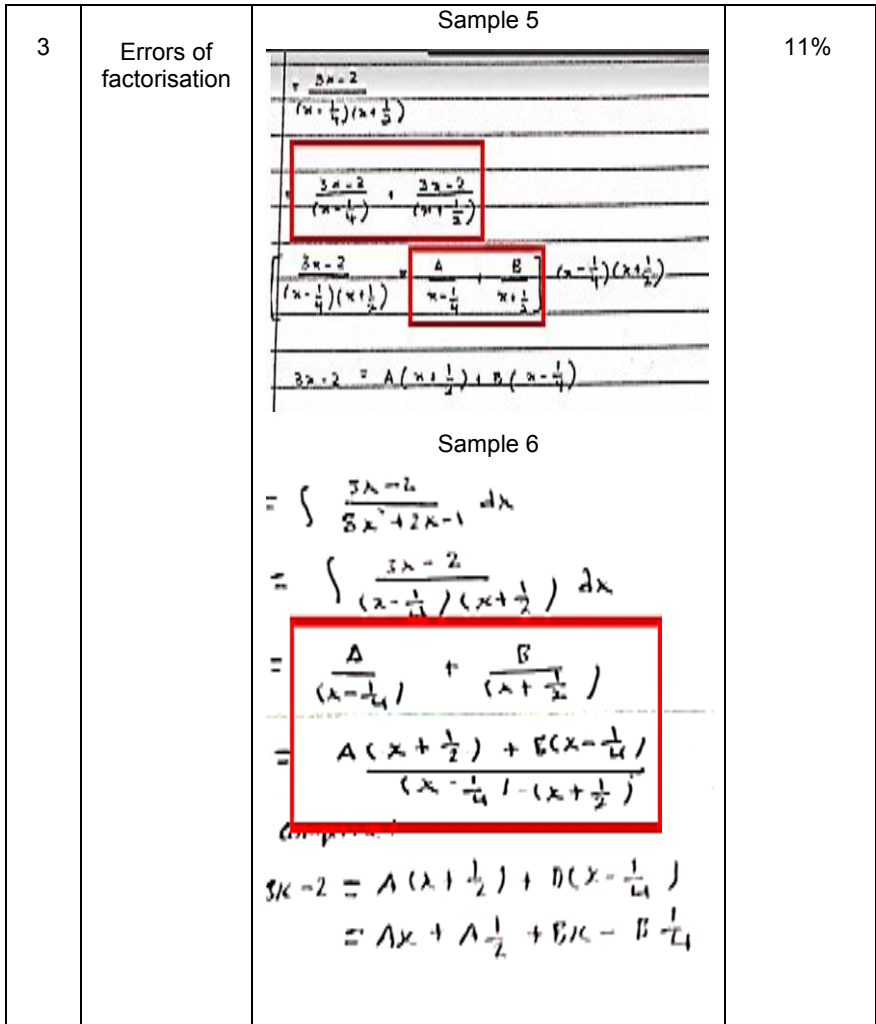 Sample 5
3
Errors of
factorisation
11%
= 3x-2 / (x-1/4)(x+1/2)
= 3x-2 / (x-1/4) + 3x-2 / (x+1/2)
[3x-2 / (x-1/4)(x+1/2) = A / x-1/4 + B / x+1/2] (x-1/4)(x+1/2)
3x-2 = A(x+1/2) + B(x-1/4)
Sample 6
= ∫ 3x-2 / 8x²+2x-1 dx
= ∫ 3x-2 / (x-1/4)(x+1/2) dx
= A / (x-1/4) + B / (x+1/2)
= A(x+1/2) + B(x-1/4) / (x-1/4)-(x+1/2)
3x-2 = A(x+1/2) + B(x-1/4)
= Ax + A1/2 + Bx - B1/4